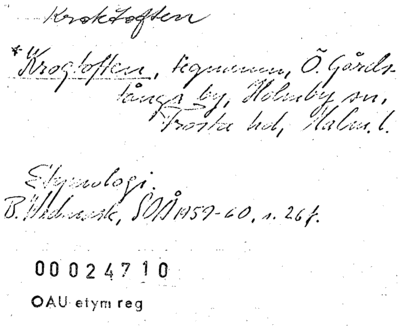 Kroktoften
*Krogtoften, tegnamn, Ö. Gårds-
tånga by, Holmby sn,
Frosta hd, Malm. l.
Etymologi.
B. SOÅ 1959-60, s. 26 f.
00024710
OAU etym reg